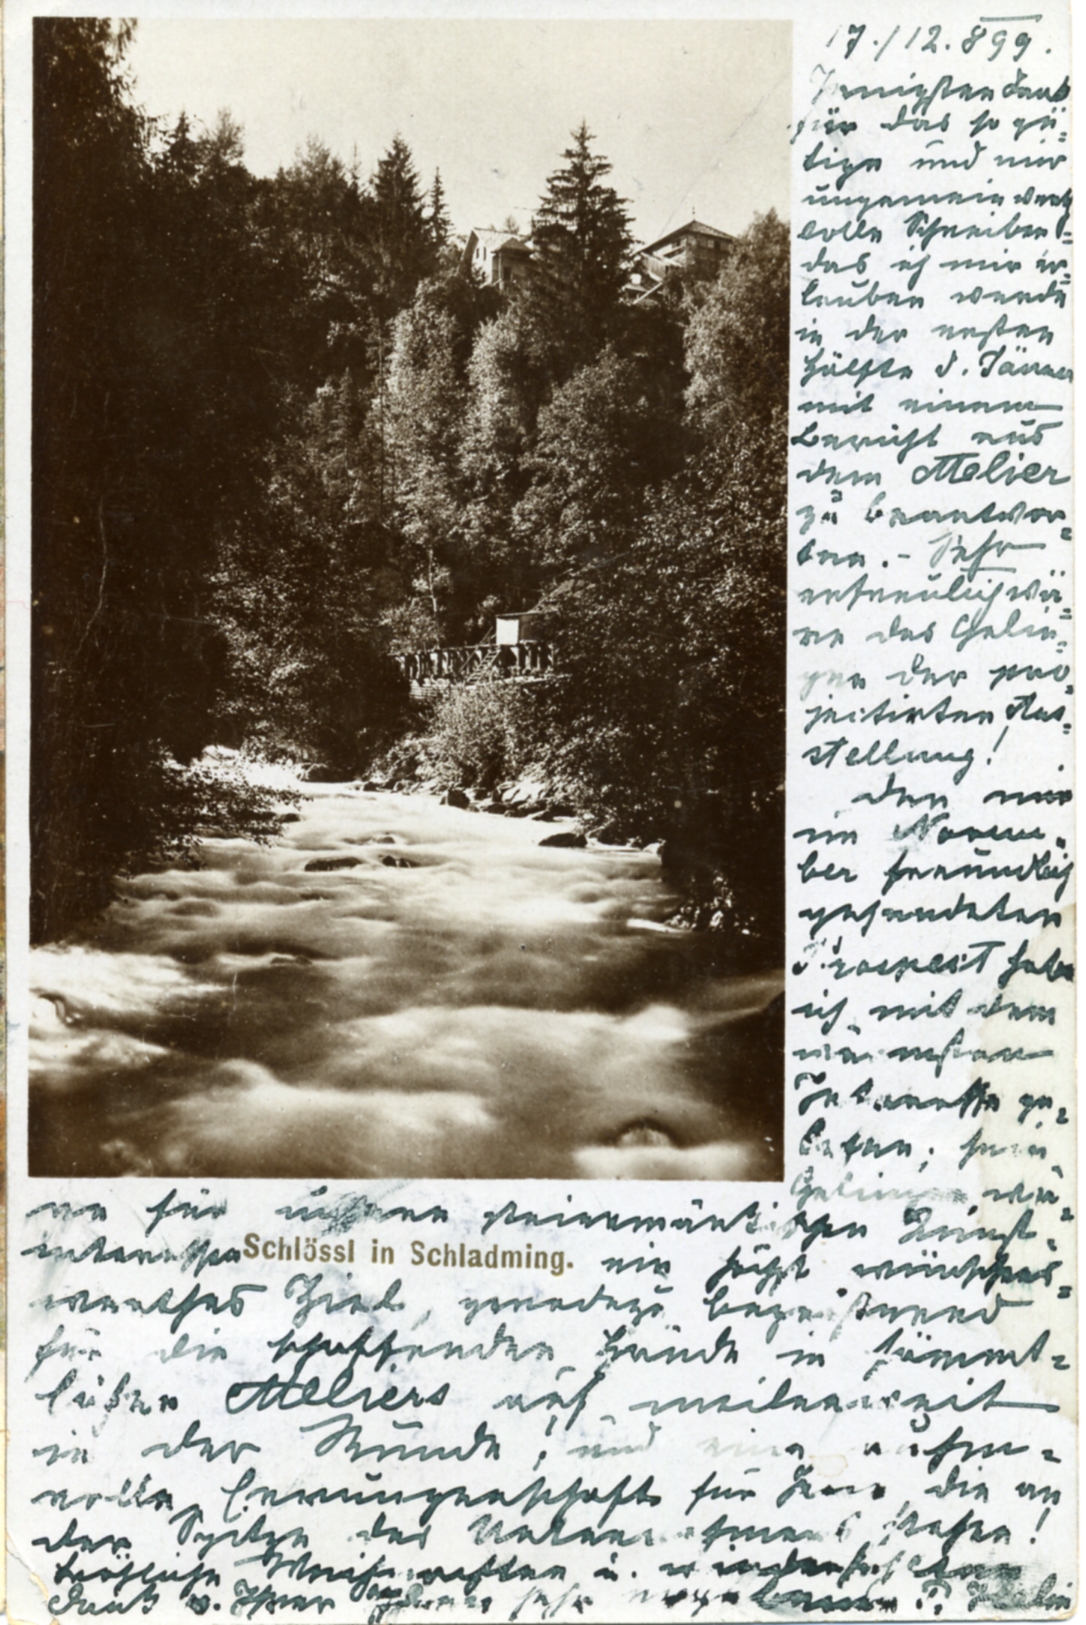 17./12. 899.
Innigsten Dank
für das so gü-
tige und mir
ungemein werth
volle Schreiben,
das ich mir er-
lauben werde
in der ersten
Hälfte d. Jänner
mit einem
Bericht aus
dem Atelier
zu beantwor-
ten. - Sehr
erfreulich wä-
re das Gelin-
gen der pro-
jectirten Aus-
stellung!
Den mir
im Novem-
ber freundlich
gesendeten
Prospect habe
ich mit dem
wärmsten
Interesse ge-
lesen; sein
Gelingen wä-
re für unsere steiermärkischen Kunst-
interessen ein höchst wünschens-
Schlössl in Schladming.
werthes Ziel, geradezu begeisternd
für die schaffenden Hände in sämmt-
lichen Ateliers auf meilenweit
in der Runde, und eine ruhm-
volle Errungenschaft für Jene, die an
der Spitze des Unternehmens stehen!
Fröhliche Weihnachten u. wiederholten
Dank v. Ihrer sehr ergebenen